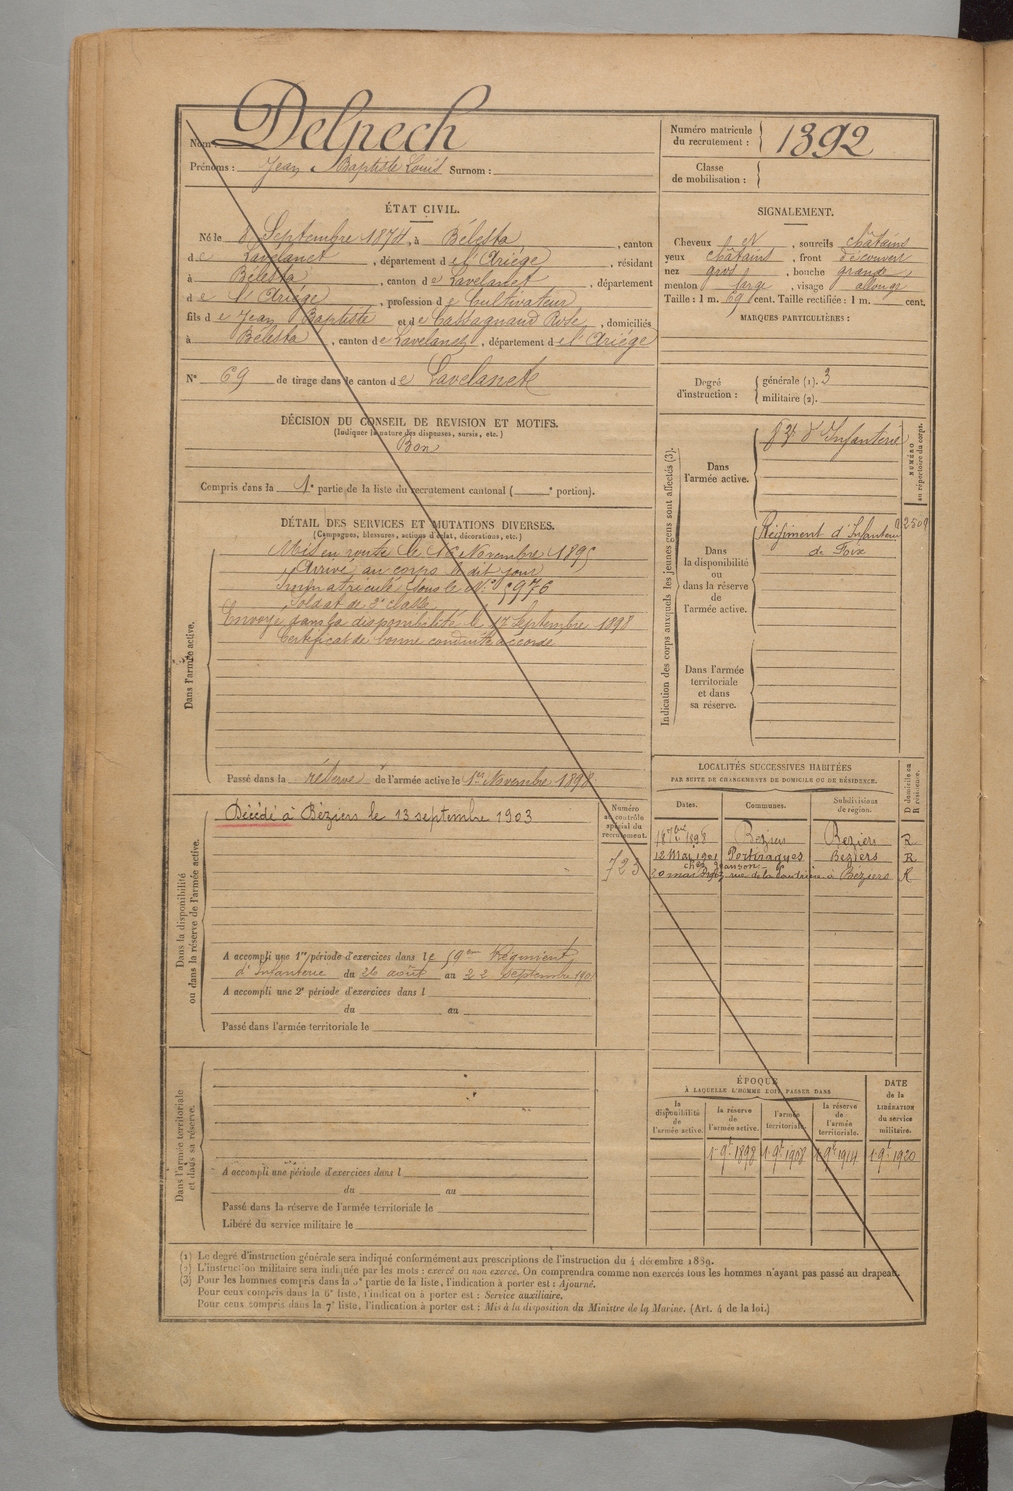 Nom : Delpech
Prénoms : Jean Baptiste Louis Surnom :
Numéro matricule
du recrutement : 1392
Classe
de mobilisation :
ÉTAT CIVIL.
Né le 8 Septembre 1874, à Bélesta, canton
de Lavelanet, département de l'Ariège, résidant
à Bélesta, canton de Lavelanet, département
de l'Ariége, profession de Cultivateur
fils de Jean Baptiste et de Cassagnaud Rose, domiciliés
à Bélesta, canton de Lavelanet, département de l'Ariége
N° 69 de tirage dans le canton de Lavelanet
SIGNALEMENT.
Cheveux et , sourcils châtains
yeux châtains, front découvert
nez gros, bouche grande,
menton large, visage allongé
Taille : 1 m. 69 cent. Taille rectifiée : 1 m. cent.
MARQUES PARTICULIÈRES :
Degré
d'instruction :
générale (1). 3
militaire (2).
DÉCISION DU CONSEIL DE REVISION ET MOTIFS.
(Indiquer la nature des dispenses, sursis, etc.)
Bon
Compris dans la 1e partie de la liste du recrutement cantonal ( e portion).
DÉTAIL DES SERVICES ET MUTATIONS DIVERSES.
(Campagnes, blessures, actions d'éclat, décorations, etc.)
Dans l'armée active.
Mis en route le 16 Novembre 1895
Arrivé au corps le dit jour
Immatriculé sous le N° 5976
Soldat de 2e classe
Envoyé dans la disponibilité le 17 Septembre 1898
Certificat de bonne conduite accordé
Passé dans la réserve de l'armée active le 1er Novembre 1898
Indication des corps auxquels les jeunes gens sont affectés (3).
NUMÉRO
au répertoire du corps.
Dans
l'armée active.
d'Infanterie
Dans
la disponibilité
ou
dans la réserve de
l'armée active.
Régiment d'Infanterie
de Foix
Dans l'armée
territoriale
et dans
sa réserve.
Dans la disponibilité
ou dans la réserve de l'armée active.
Décédé à Béziers le 13 septembre 1903
Numéro
au contrôle
spécial du
recrutement.
723
A accompli une 1re période d'exercices dans le 59ème Régiment
d'Infanterie du 26 août au 22 Septembre
A accompli une 2e période d'exercices dans l
du au
Passé dans l'armée territoriale le
LOCALITÉS SUCCESSIVES HABITÉES
PAR SUITE DE CHANGEMENTS DE DOMICILE OU DE RÉSIDENCE.
Dates. Communes. Subdivisions
de région. D domicile ou
R résidence.
1898 Beziers Beziers R
12 Mai 1901 Portiragnes Beziers R
chez
20 mai rue de la à Béziers R
Dans l'armée territoriale
et dans sa réserve.
A accompli une période d'exercices dans l
du au
Passé dans la réserve de l'armée territoriale le
Libéré du service militaire le
ÉPOQUE
À LAQUELLE L'HOMME DOIT PASSER DANS
la
disponibilité
de
l'armée active.
la réserve
de
l'armée active.
l'armée
territoriale.
la réserve
de
l'armée
territoriale.
DATE
de la
LIBÉRATION
du service
militaire.
1 9e 1898 1 9e 1908 1 9e 1914 1 9e 1920
(1) Le degré d'instruction générale sera indiqué conformément aux prescriptions de l'instruction du 4 décembre 1889.
(2) L'instruction militaire sera indiquée par les mots : exercé ou non exercé. On comprendra comme non exercés tous les hommes n'ayant pas passé au drapeau.
(3) Pour les hommes compris dans la 5e partie de la liste, l'indication à porter est : Ajourné.
Pour ceux compris dans la 6e liste, l'indication à porter est : Service auxiliaire.
Pour ceux compris dans la 7e liste, l'indication à porter est : Mis à la disposition du Ministre de la Marine. (Art. 4 de la loi.)